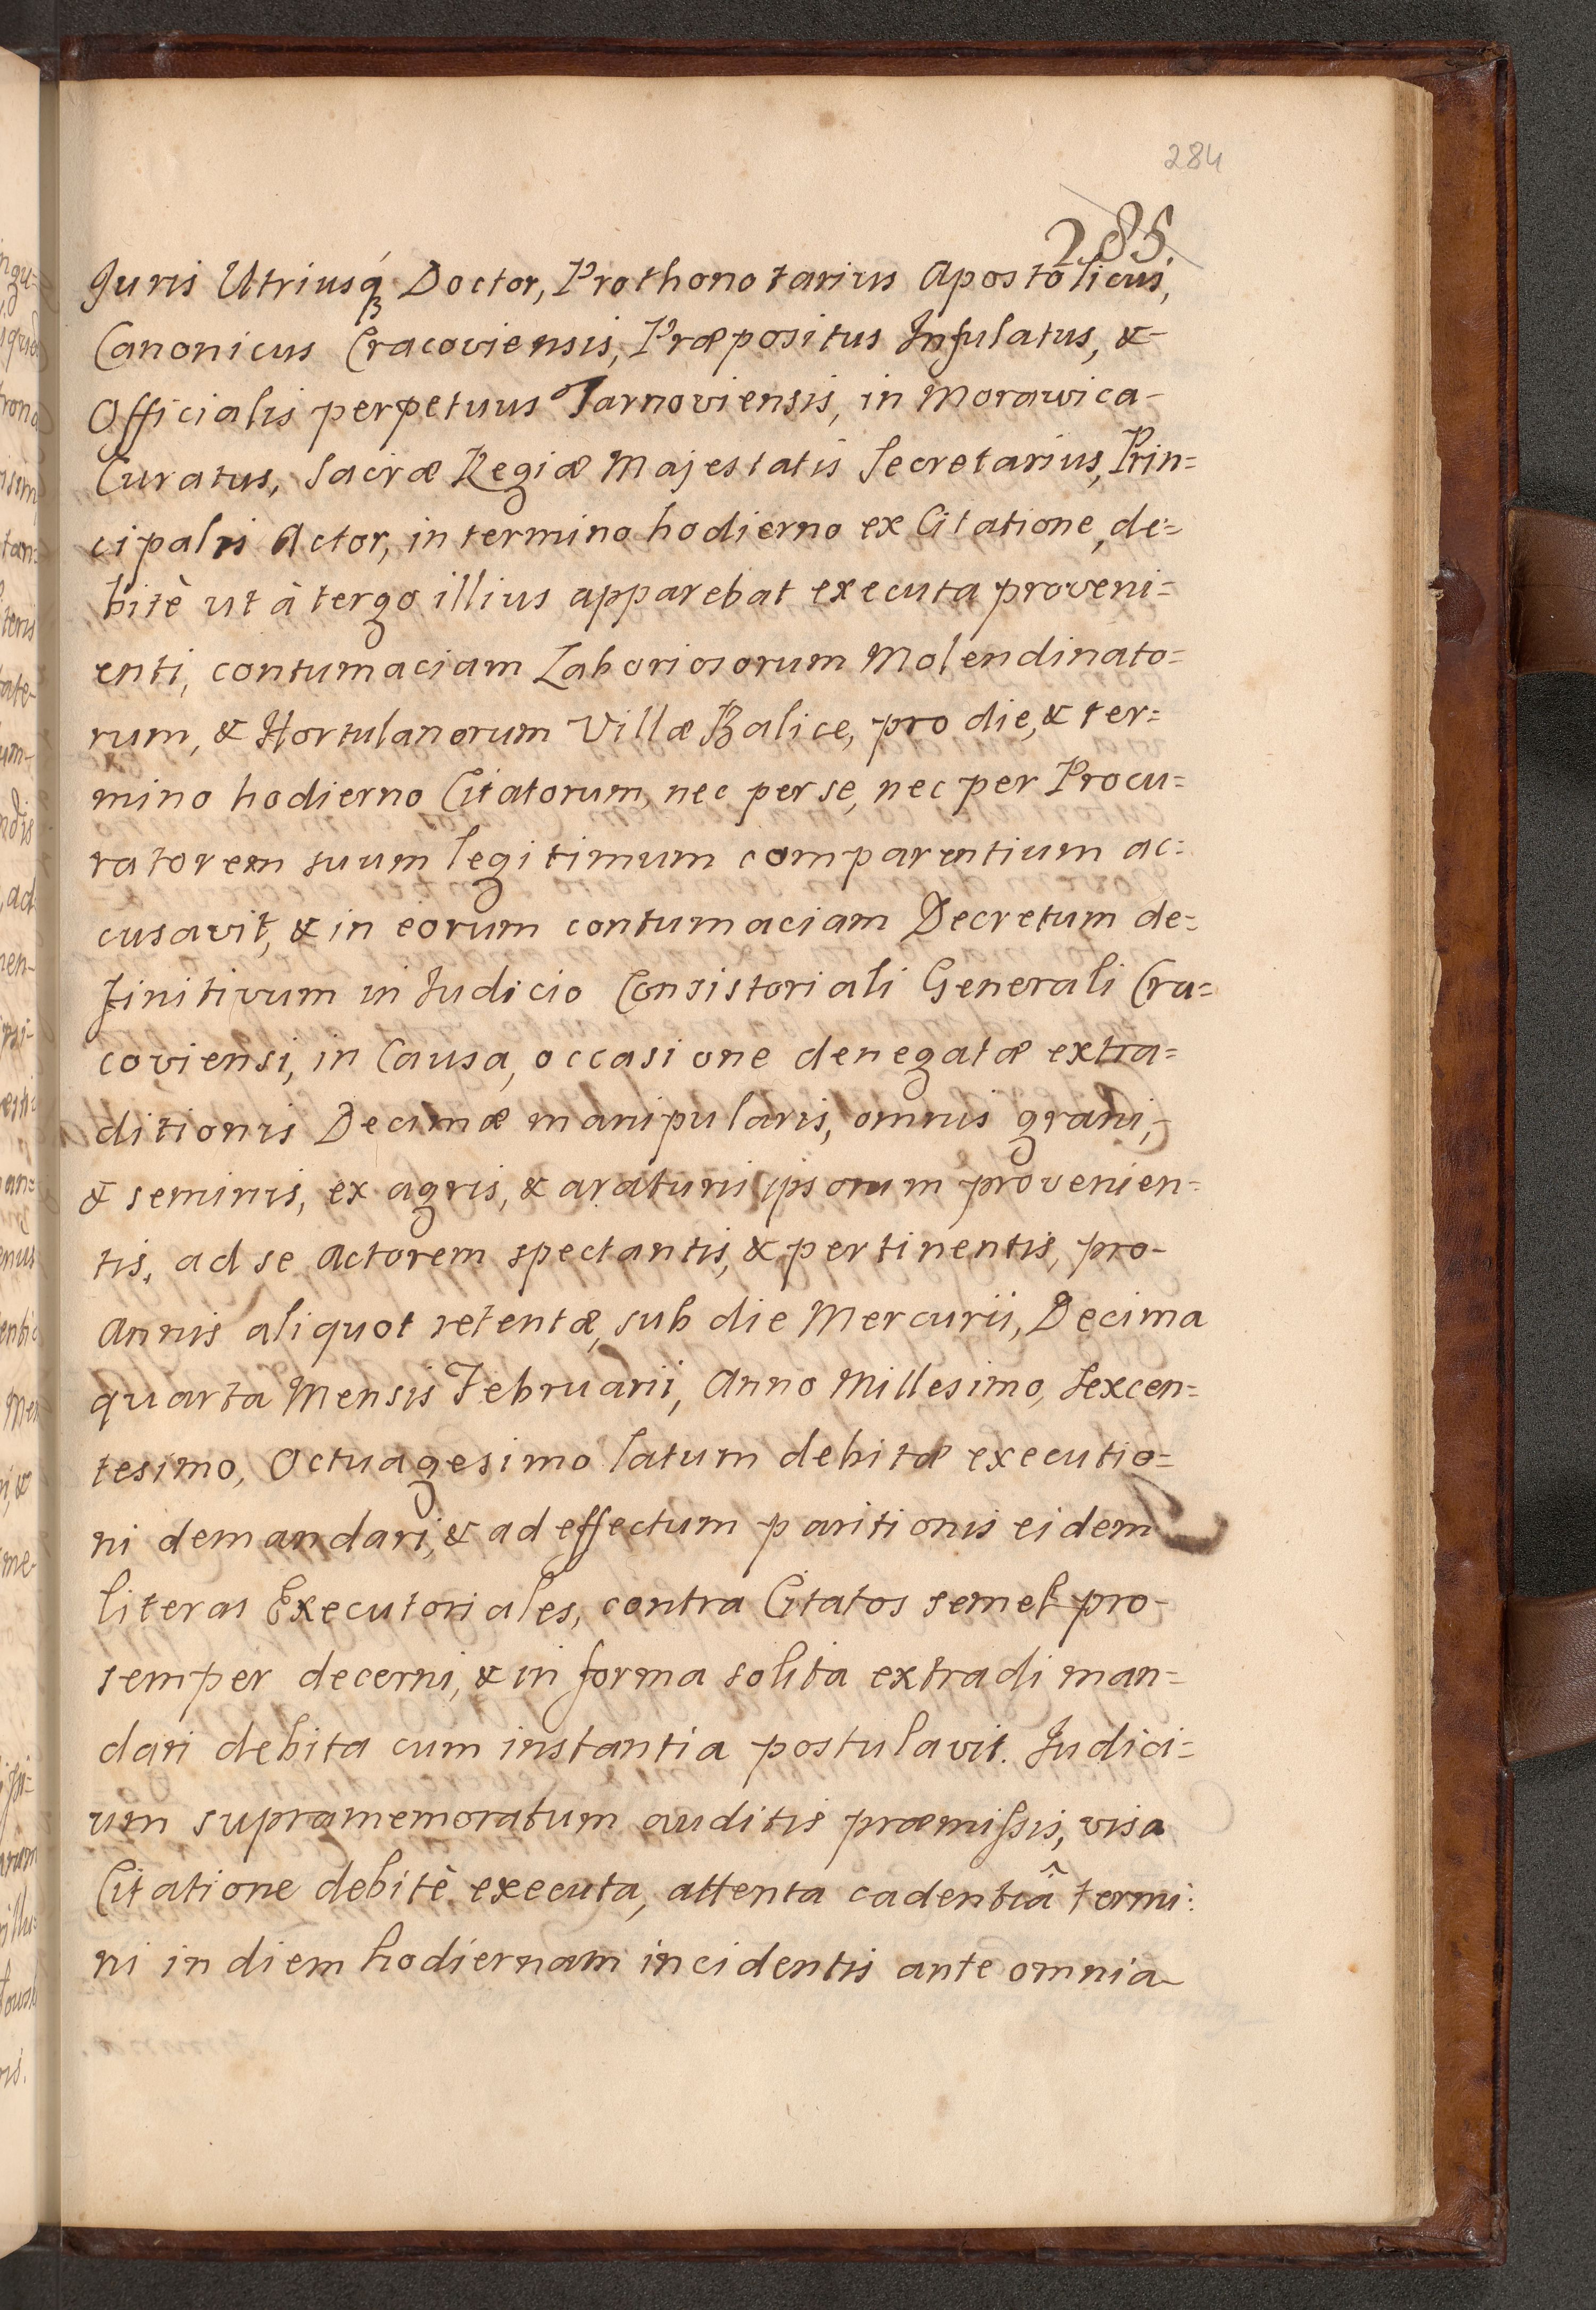 284
285.
Juris Utriusq́ꝫ Doctor, Prothonotarius Apostolicus,
Canonicus Cracoviensis, Præpositus Infulatus, &
Officialis perpetuus Tarnoviensis, in Morawica
Curatus, Sacræ Regiæ Majestatis Secretarius, Prin=
cipalis Actor, in termino hodierno ex Citatione, de=
bitè ut à tergo illius apparebat executa proveni=
enti, contumaciam Laboriosorum Molendinato=
rum, & Hortulanorum Villæ Balice, pro die, & ter=
mino hodierno Citatorum, nec per se, nec per Procu=
ratorem suum legitimum comparentium ac=
cusavit, & in eorum contumaciam Decretum de=
finitivum in Judicio Consistoriali Generali Cra=
coviensi, in Causa, occasione denegatæ extra=
ditionis Decimæ manipularis, omnis grani,
& seminis, ex agris, & araturis ipsorum provenien=
tis, ad se Actorem spectantis, & pertinentis, pro
Annis aliquot retentæ, sub die Mercurii, Decima
quarta Mensis Februarii, Anno Millesimo, Sexcen=
tesimo, Octuagesimo latum debitæ executio=
ni demandari, & ad effectum paritionis eidem
literas Executoriales, contra Citatos semel pro
semper decerni, & in forma solita extradi man=
dari debita cum instantia postulavit. Judici=
um supramemoratum auditis præmissis, visa
Citatione debitè executa, attenta cadentiâ termi=
ni in diem hodiernam incidentis ante omnia